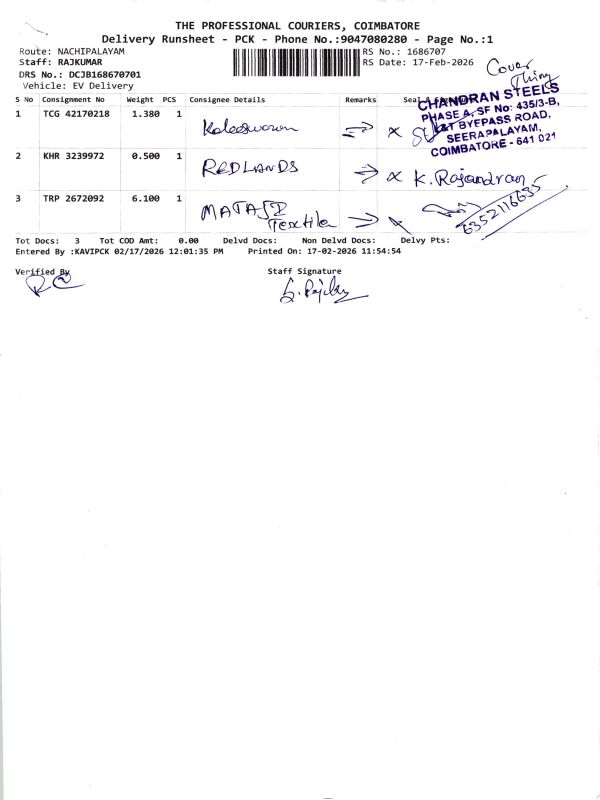 THE PROFESSIONAL COURIERS, COIMBATORE
Delivery Runsheet - PCK - Phone No.:9047080280 - Page No.:1
Route: NACHIPALAYAM RS No.: 1686707
Staff: RAJKUMAR RS Date: 17-Feb-2026
DRS No.: DCJB168670701
Vehicle: EV Delivery
Cover
Thing
S No Consignment No Weight PCS Consignee Details Remarks Seal &
1 TCG 42170218 1.380 1 Kaleeswaran
CHANDRAN STEELS
PHASE A, SF No: 435/3-B,
L&T BYEPASS ROAD,
SEERAPALAYAM,
COIMBATORE - 641 021
2 KHR 3239972 0.500 1 REDLANDS K. Rajandran
3 TRP 2672092 6.100 1 MATAJI
Textile
6352116635
Tot Docs: 3 Tot COD Amt: 0.00 Delvd Docs: Non Delvd Docs: Delvy Pts:
Entered By :KAVIPCK 02/17/2026 12:01:35 PM Printed On: 17-02-2026 11:54:54
Verified By Staff Signature